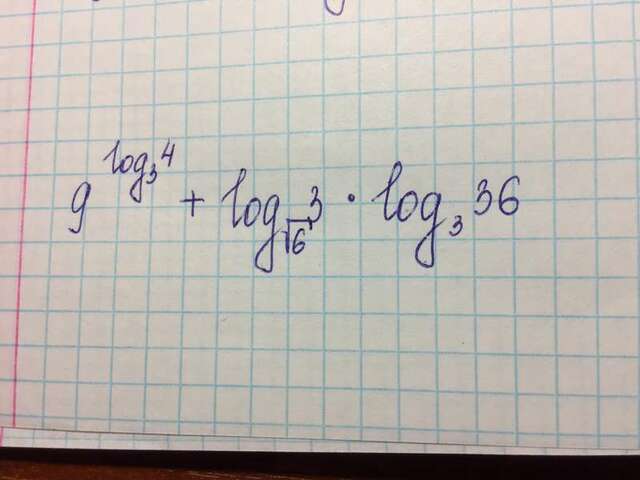 9^{log_3 4} + log_{\sqrt{6}} 3 · log_3 36